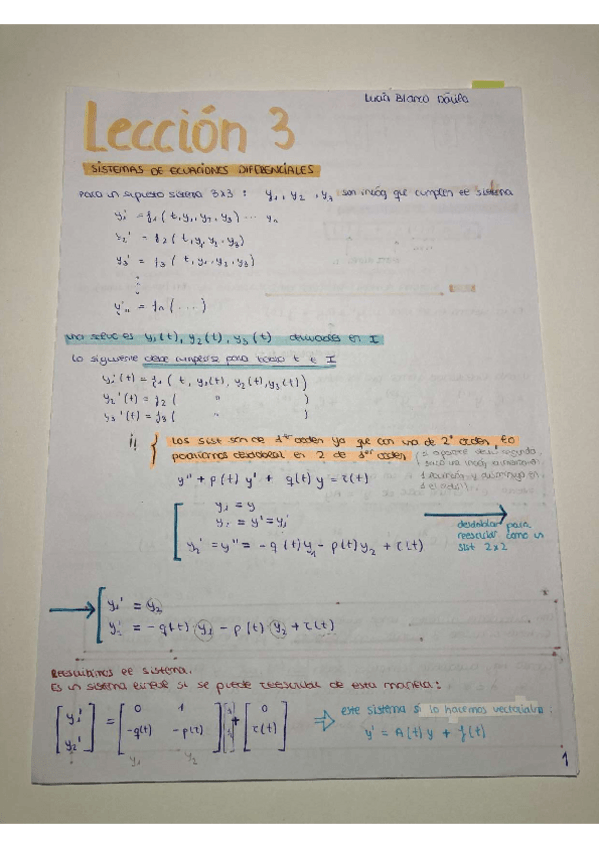 Lucía Blanco Dávila
Lección 3
SISTEMAS DE ECUACIONES DIFERENCIALES
Para un supuesto sistema 3x3 : y₁, y₂, y₃ son incóg que cumplen el sistema
y₁' = f₁ (t, y₁, y₂, y₃) ... yₙ
y₂' = f₂ (t, y₁, y₂, y₃)
y₃' = f₃ (t, y₁, y₂, y₃)
⋮
y'ₙ = fₙ (...)
una soluc es y₁(t), y₂(t), y₃(t) derivables en I
Lo siguiente debe cumplirse para todo t ∈ I
y₁'(t) = f₁ (t, y₁(t), y₂(t), y₃(t))
y₂'(t) = f₂ ( " )
y₃'(t) = f₃ ( " )
¡! { Los sist son de 1er orden ya que con una de 2º orden, lo
podríamos desdoblar en 2 de 1er orden
y'' + p(t) y' + q(t) y = r(t)
y₁ = y
y₂ = y' = y₁'
y₂' = y'' = -q(t)y₁ - p(t)y₂ + r(t)
desdoblar para
reescribir como un
sist 2x2
y₁' = y₂
y₂' = -q(t) y₁ - p(t) y₂ + r(t)
Reescribimos el sistema.
Es un sistema lineal si se puede reescribir de esta manera:
[y₁' y₂'] = [0 1 -q(t) -p(t)] [y₁ y₂] + [0 r(t)]
y₁ y₂
⇒ este sistema si lo hacemos vectorial :
y' = A(t) y + f(t)
1